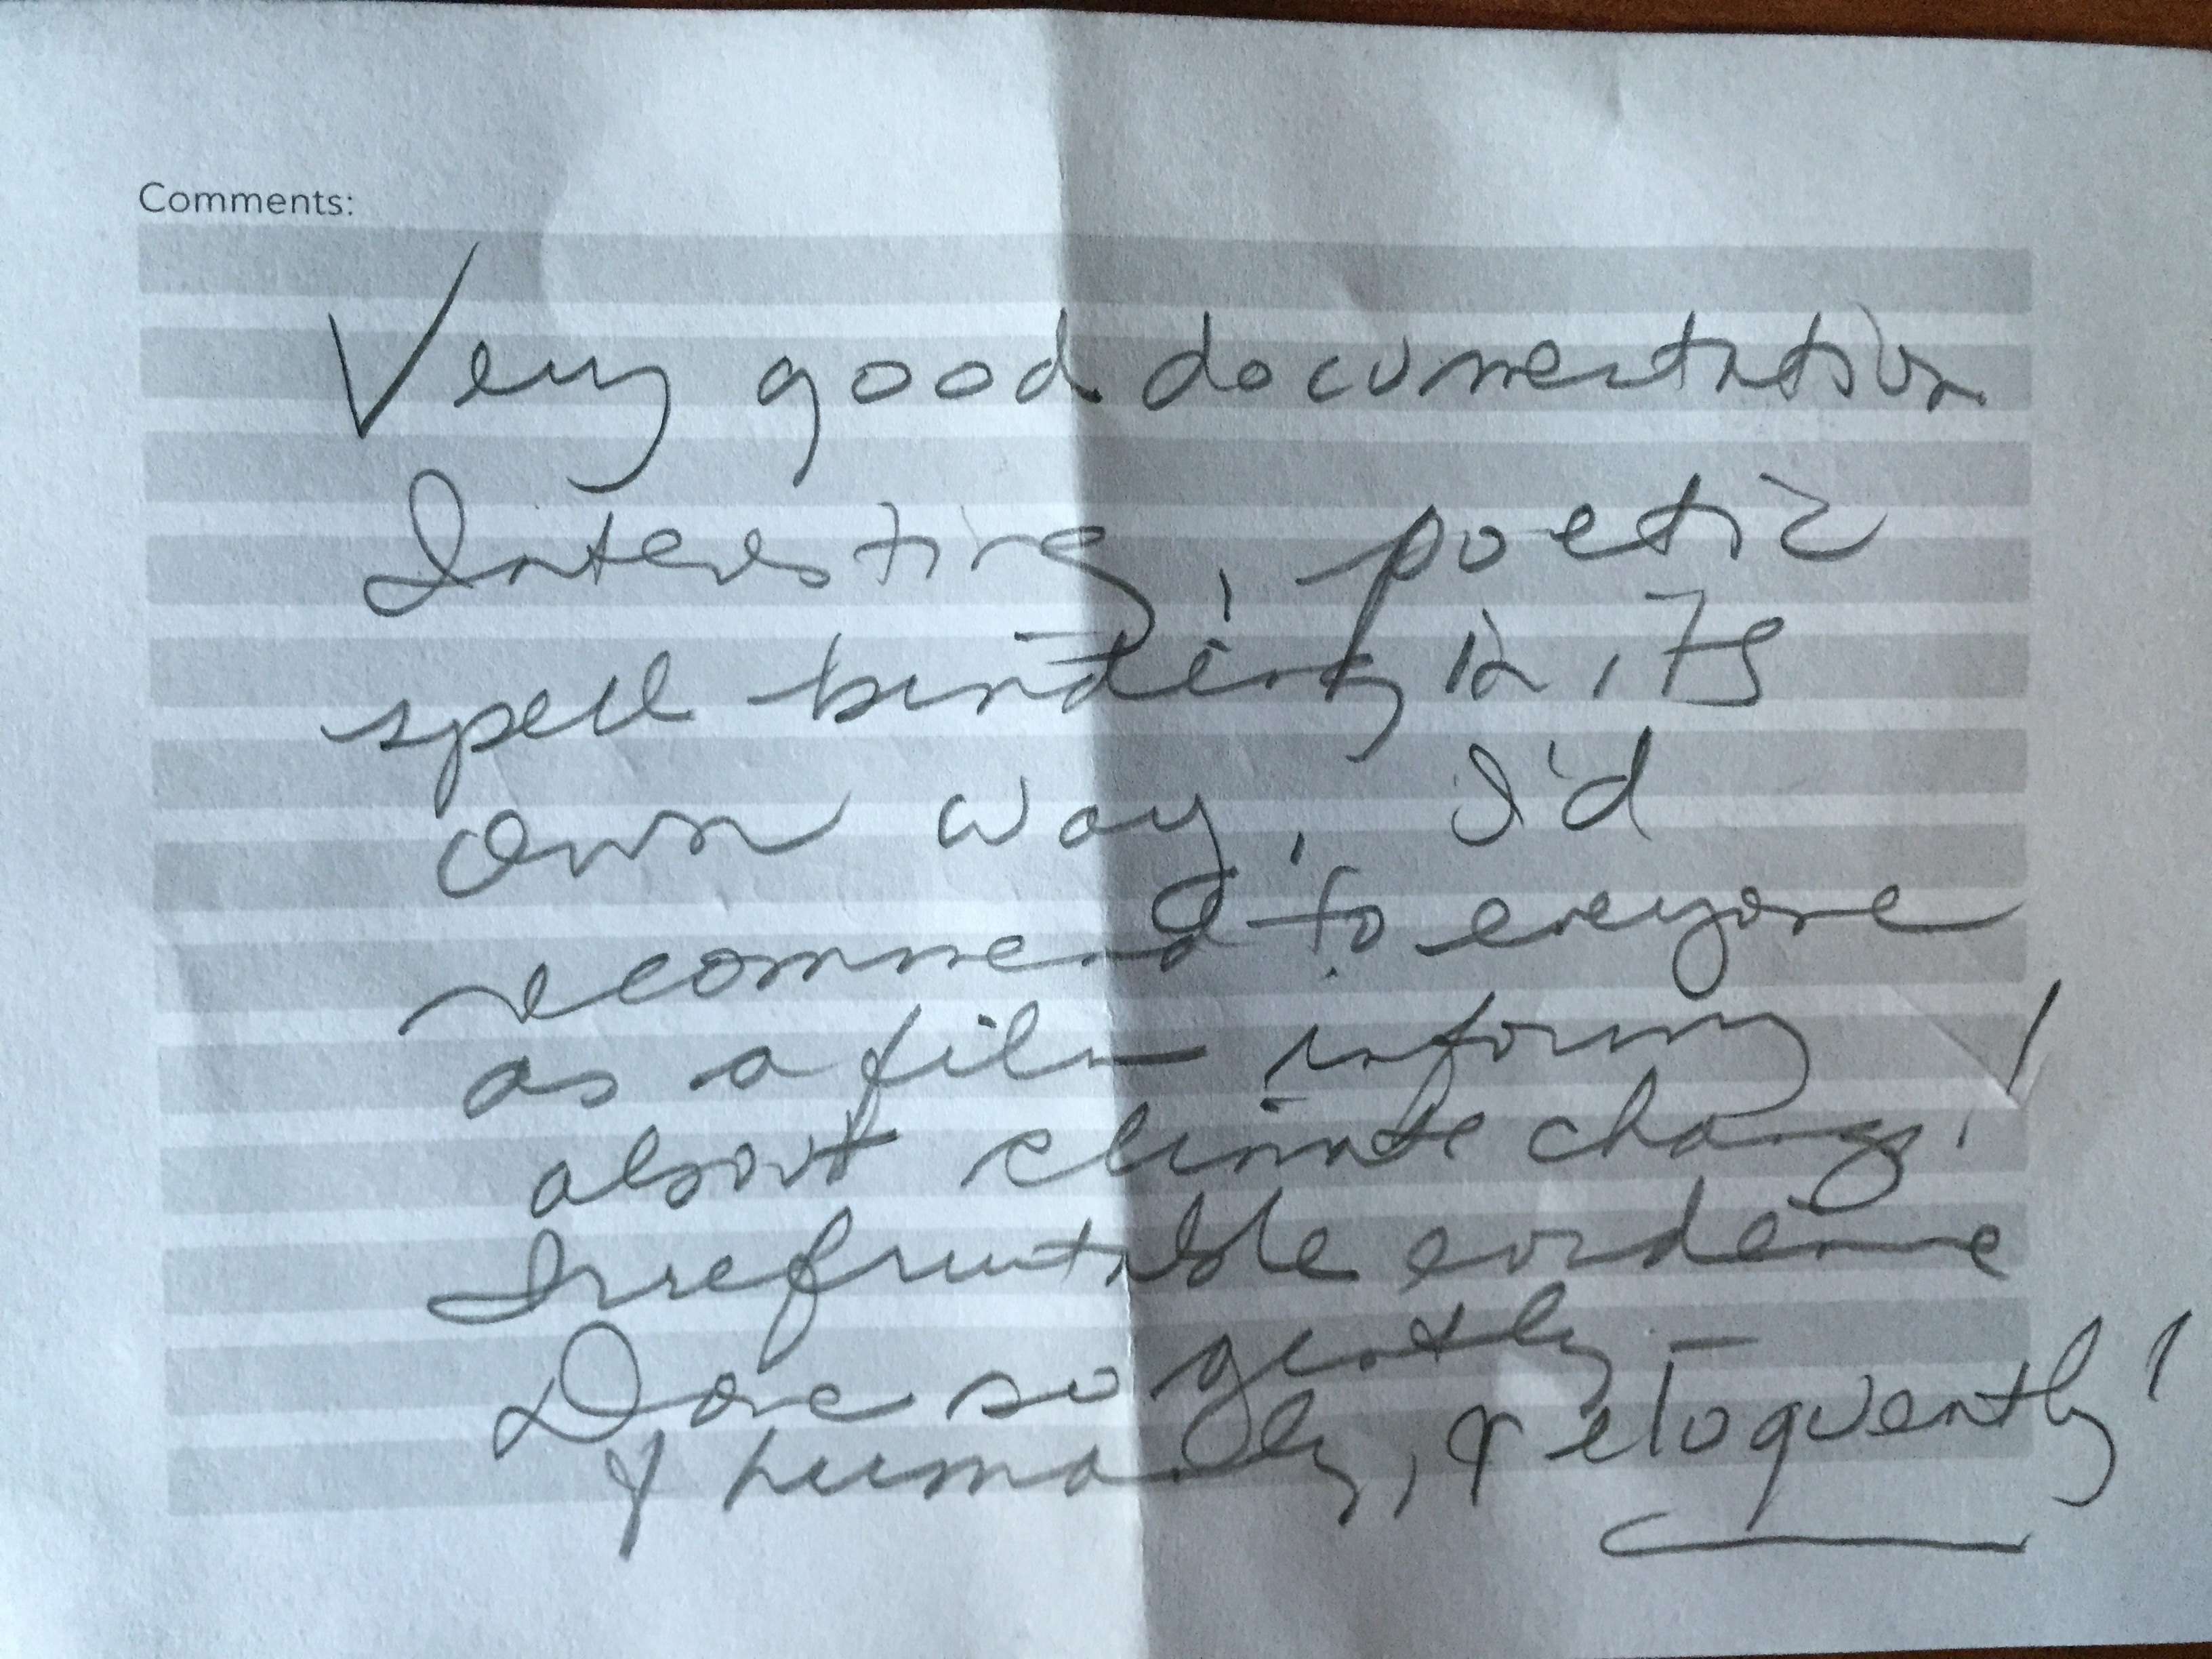 Comments:
Very good documentation
Interesting, poetic
spell binding in its
own way. I'd
recommend to everyone
as a film informing
about climate change!
Irrefruitable evidence
Done so gently –
& humanly, & eloquently!